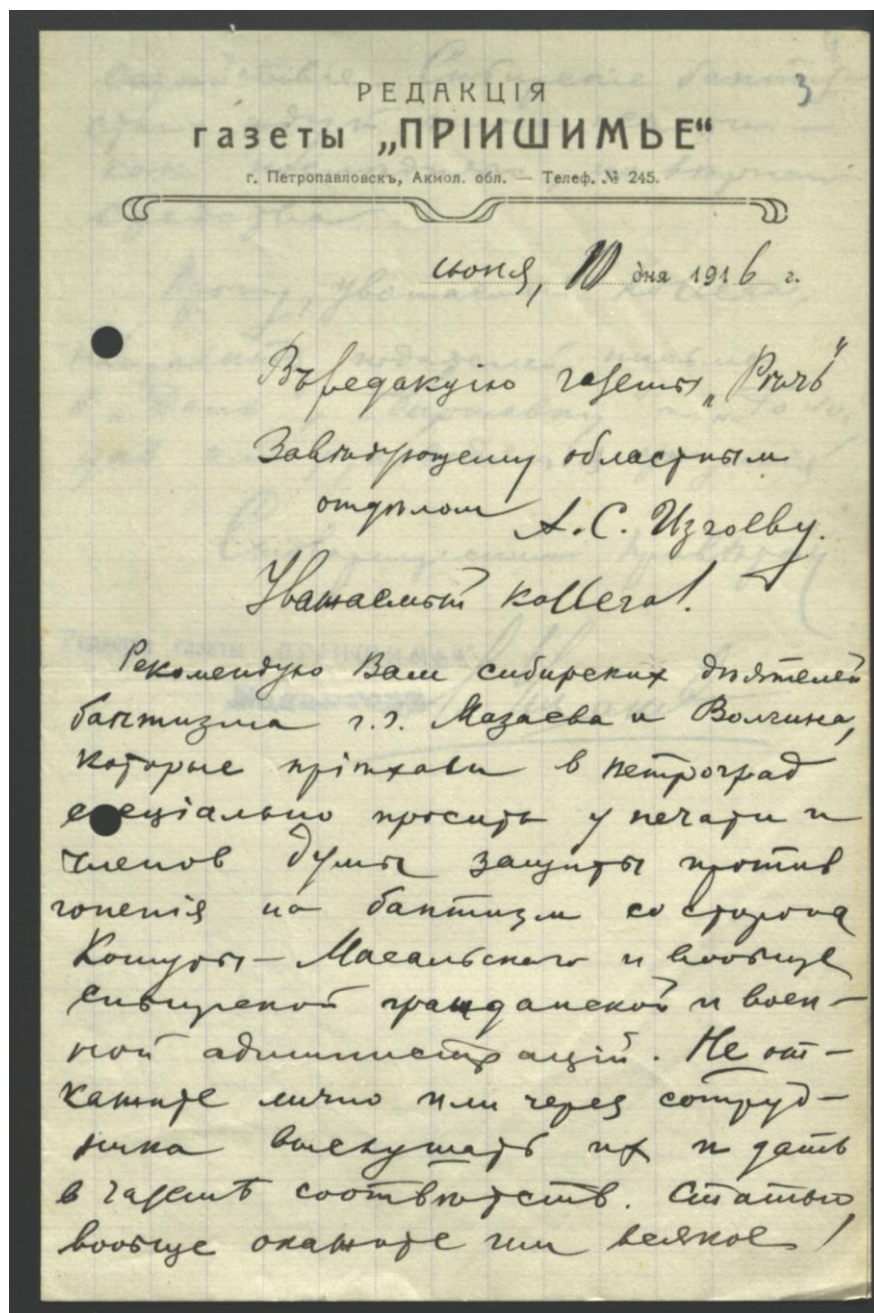 3
РЕДАКЦІЯ
газеты „ПРІИШИМЬЕ“
г. Петропавловскъ, Акмол. обл. — Телеф. № 245.
июня, 10 дня 1916 г.
Въ редакцію газеты „Рѣчь“
Завѣдующему областным
отдѣлом А. С. Изгоеву.
Уважаемый коллега!
Рекомендую Вам сибирских дѣятелей
баптизма г.г. Мазаева и Волгина,
которые пріѣхали в Петроград
спеціально просить у печати и
членов Думы защиты против
гоненія на баптизм со стороны
Кощуты-Масальского и вообще
сибирской гражданской и воен-
ной администрацій. Не от-
кажите лично или через сотруд-
ника выслушать их и дать
в газетѣ соотвѣтств. статью,
вообще окажите им всякое